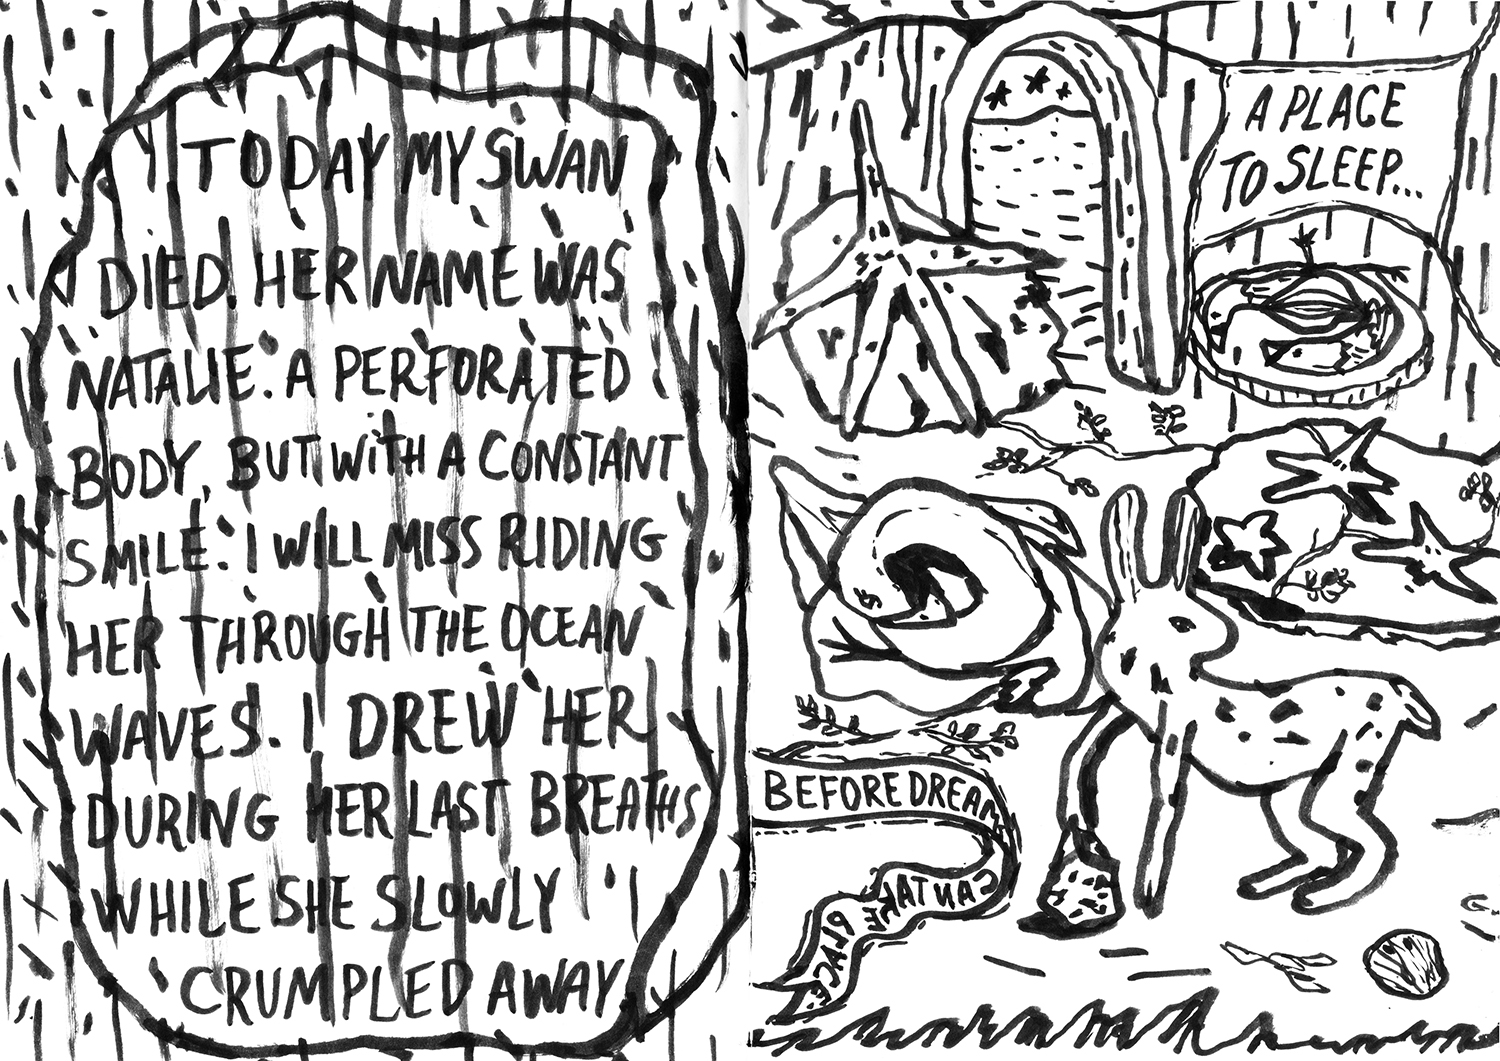 TODAY MY SWAN
DIED. HER NAME WAS
NATALIE. A PERFORATED
BODY, BUT WITH A CONSTANT
SMILE. I WILL MISS RIDING
HER THROUGH THE OCEAN
WAVES. I DREW HER
DURING HER LAST BREATHS
WHILE SHE SLOWLY
CRUMPLED AWAY.
A PLACE
TO SLEEP...
BEFORE DREAMS
CAN TAKE
PLACE.